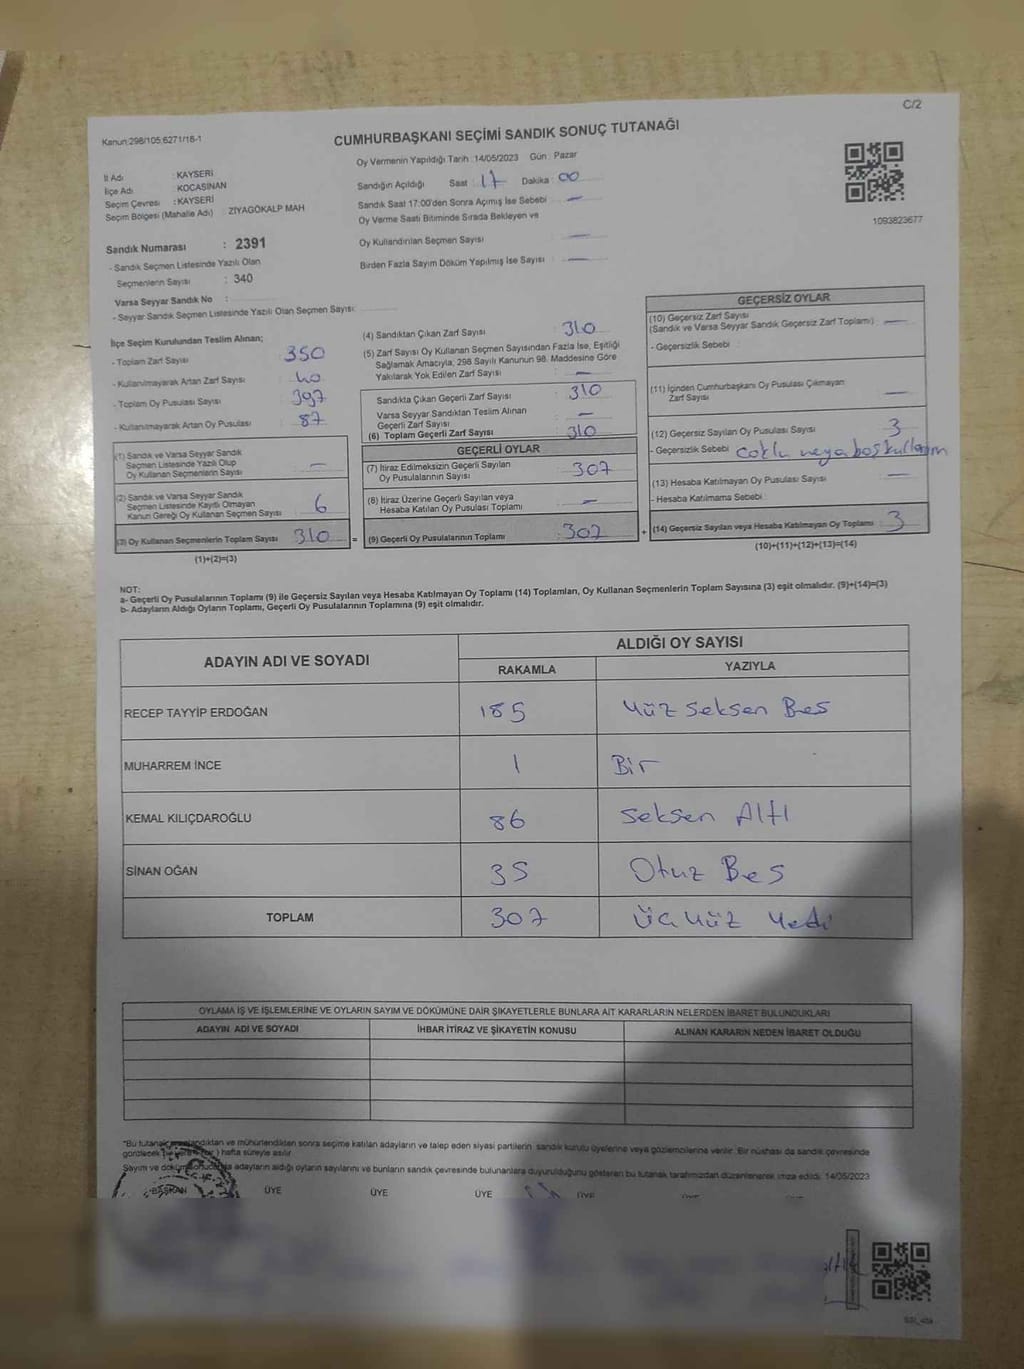 C/2
Kanun:298/105;6271/16-1
CUMHURBAŞKANI SEÇİMİ SANDIK SONUÇ TUTANAĞI
Oy Vermenin Yapıldığı Tarih :14/05/2023 Gün : Pazar
İl Adı : KAYSERİ
İlçe Adı : KOCASİNAN
Seçim Çevresi : KAYSERİ
Seçim Bölgesi (Mahalle Adı) : ZİYAGÖKALP MAH
Sandık Numarası : 2391
- Sandık Seçmen Listesinde Yazılı Olan
Seçmenlerin Sayısı : 340
Varsa Seyyar Sandık No :
- Seyyar Sandık Seçmen Listesinde Yazılı Olan Seçmen Sayısı:
Sandığın Açıldığı Saat : 17 Dakika : 00
Sandık Saat 17:00'den Sonra Açımış İse Sebebi : —
Oy Verme Saati Bitiminde Sırada Bekleyen ve
Oy Kullandırılan Seçmen Sayısı : —
Birden Fazla Sayım Döküm Yapılmış İse Sayısı : —
1093823677
İlçe Seçim Kurulundan Teslim Alınan;
- Toplam Zarf Sayısı : 350
- Kullanılmayarak Artan Zarf Sayısı : 40
- Toplam Oy Pusulası Sayısı : 397
- Kullanılmayarak Artan Oy Pusulası : 87
(1) Sandık ve Varsa Seyyar Sandık
Seçmen Listesinde Yazılı Olup
Oy Kullanan Seçmenlerin Sayısı : —
(2) Sandık ve Varsa Seyyar Sandık
Seçmen Listesinde Kayıtlı Olmayan
Kanun Gereği Oy Kullanan Seçmen Sayısı : 6
(3) Oy Kullanan Seçmenlerin Toplam Sayısı : 310
(1)+(2)=(3)
(4) Sandıktan Çıkan Zarf Sayısı : 310
(5) Zarf Sayısı Oy Kullanan Seçmen Sayısından Fazla İse, Eşitliği
Sağlamak Amacıyla; 298 Sayılı Kanunun 98. Maddesine Göre
Yakılarak Yok Edilen Zarf Sayısı : —
Sandıkta Çıkan Geçerli Zarf Sayısı : 310
Varsa Seyyar Sandıktan Teslim Alınan
Geçerli Zarf Sayısı : —
(6) Toplam Geçerli Zarf Sayısı : 310
GEÇERLİ OYLAR
(7) İtiraz Edilmeksizin Geçerli Sayılan
Oy Pusulalarının Sayısı : 307
(8) İtiraz Üzerine Geçerli Sayılan veya
Hesaba Katılan Oy Pusulası Toplamı : —
= (9) Geçerli Oy Pusulalarının Toplamı : 307
GEÇERSİZ OYLAR
(10) Geçersiz Zarf Sayısı
(Sandık ve Varsa Seyyar Sandık Geçersiz Zarf Toplamı) : —
- Geçersizlik Sebebi :
(11) İçinden Cumhurbaşkanı Oy Pusulası Çıkmayan
Zarf Sayısı : —
(12) Geçersiz Sayılan Oy Pusulası Sayısı : 3
- Geçersizlik Sebebi : coklu veya boş kullanım
(13) Hesaba Katılmayan Oy Pusulası Sayısı : —
- Hesaba Katılmama Sebebi :
+ (14) Geçersiz Sayılan veya Hesaba Katılmayan Oy Toplamı : 3
(10)+(11)+(12)+(13)=(14)
NOT:
a- Geçerli Oy Pusulalarının Toplamı (9) ile Geçersiz Sayılan veya Hesaba Katılmayan Oy Toplamı (14) Toplamları, Oy Kullanan Seçmenlerin Toplam Sayısına (3) eşit olmalıdır. (9)+(14)=(3)
b- Adayların Aldığı Oyların Toplamı, Geçerli Oy Pusulalarının Toplamına (9) eşit olmalıdır.
ADAYIN ADI VE SOYADI
ALDIĞI OY SAYISI
RAKAMLA YAZIYLA
RECEP TAYYİP ERDOĞAN 185 Yüz seksen Bes
MUHARREM İNCE 1 Bir
KEMAL KILIÇDAROĞLU 86 Seksen Altı
SİNAN OĞAN 35 Otuz Bes
TOPLAM 307 Üç Yüz Yedi
OYLAMA İŞ VE İŞLEMLERİNE VE OYLARIN SAYIM VE DÖKÜMÜNE DAİR ŞİKAYETLERLE BUNLARA AİT KARARLARIN NELERDEN İBARET BULUNDUKLARI
ADAYIN ADI VE SOYADI İHBAR İTİRAZ VE ŞİKAYETİN KONUSU ALINAN KARARIN NEDEN İBARET OLDUĞU
*Bu tutanak ve mühürlendikten sonra seçime katılan adayların ve talep eden siyasi partilerin sandık kurulu üyelerine veya gözlemcilerine verilir. Bir nüshası da sandık çevresinde
görülecek hafta süreyle asılır
Sayım ve döküm adayların aldığı oyların sayılarını ve bunların sandık çevresinde bulunanlara duyurulduğunu gösteren bu tutanak tarafımızdan düzenlenerek imza edildi. 14/05/2023
BAŞKAN ÜYE ÜYE ÜYE ÜYE